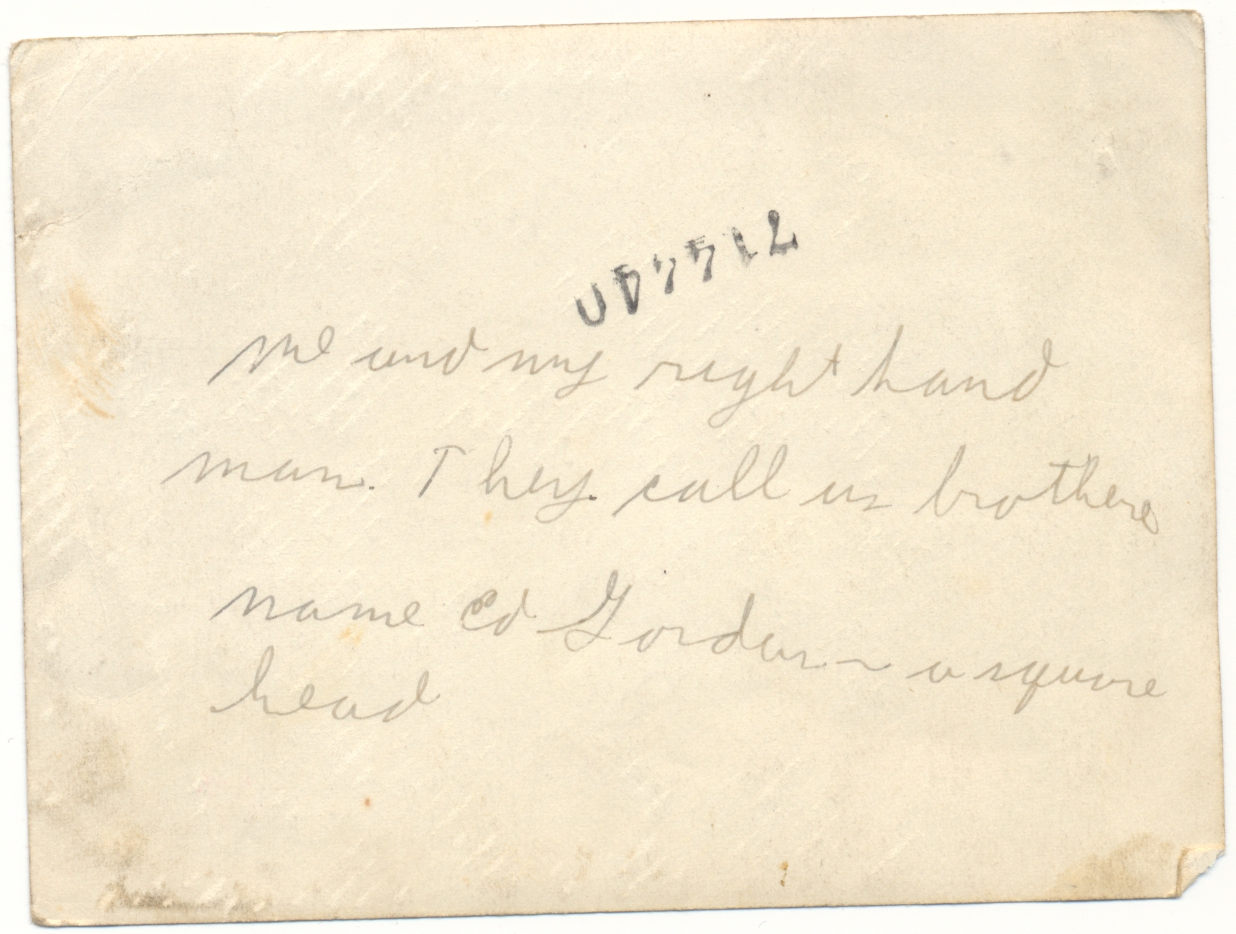 me and my right hand
man. They call us brothers
name Ed Gordon - a square
head